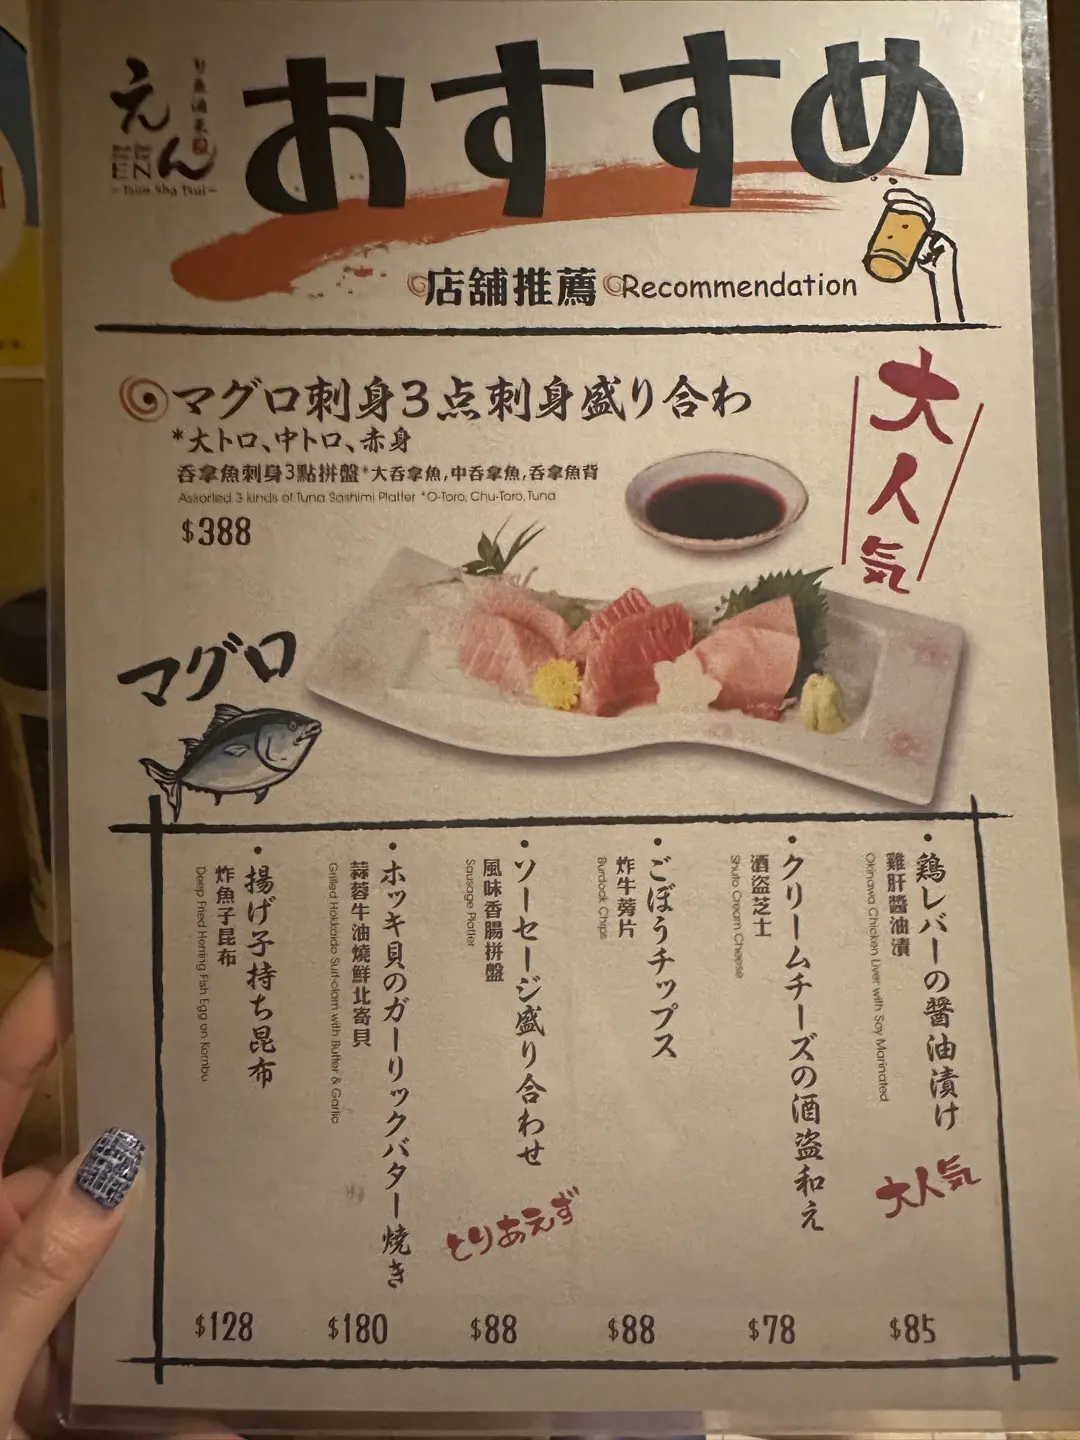 えん
EN
- Tsim Sha Tsui -
おすすめ
店舖推薦 Recommendation
大人気
マグロ刺身3点刺身盛り合わ
*大トロ、中トロ、赤身
吞拿魚刺身3點拼盤*大吞拿魚,中吞拿魚,吞拿魚背
Assorted 3 kinds of Tuna Sashimi Platter *O-Toro, Chu-Toro, Tuna
$388
マグロ
・鶏レバーの醤油漬け
雞肝醬油漬
Okinawa Chicken Liver with Soy Marinated
大人気
$85
・クリームチーズの酒盗和え
酒盗芝士
Shuto Cream Cheese
$78
・ごぼうチップス
炸牛蒡片
Burdock Chips
$88
・ソーセージ盛り合わせ
風味香腸拼盤
Sausage Platter
とりあえず
$88
・ホッキ貝のガーリックバター焼き
蒜蓉牛油燒鮮北寄貝
Grilled Hokkaido Surf-clam with Butter & Garlic
$180
・揚げ子持ち昆布
炸魚子昆布
Deep Fried Herring Fish Egg on Kombu
$128